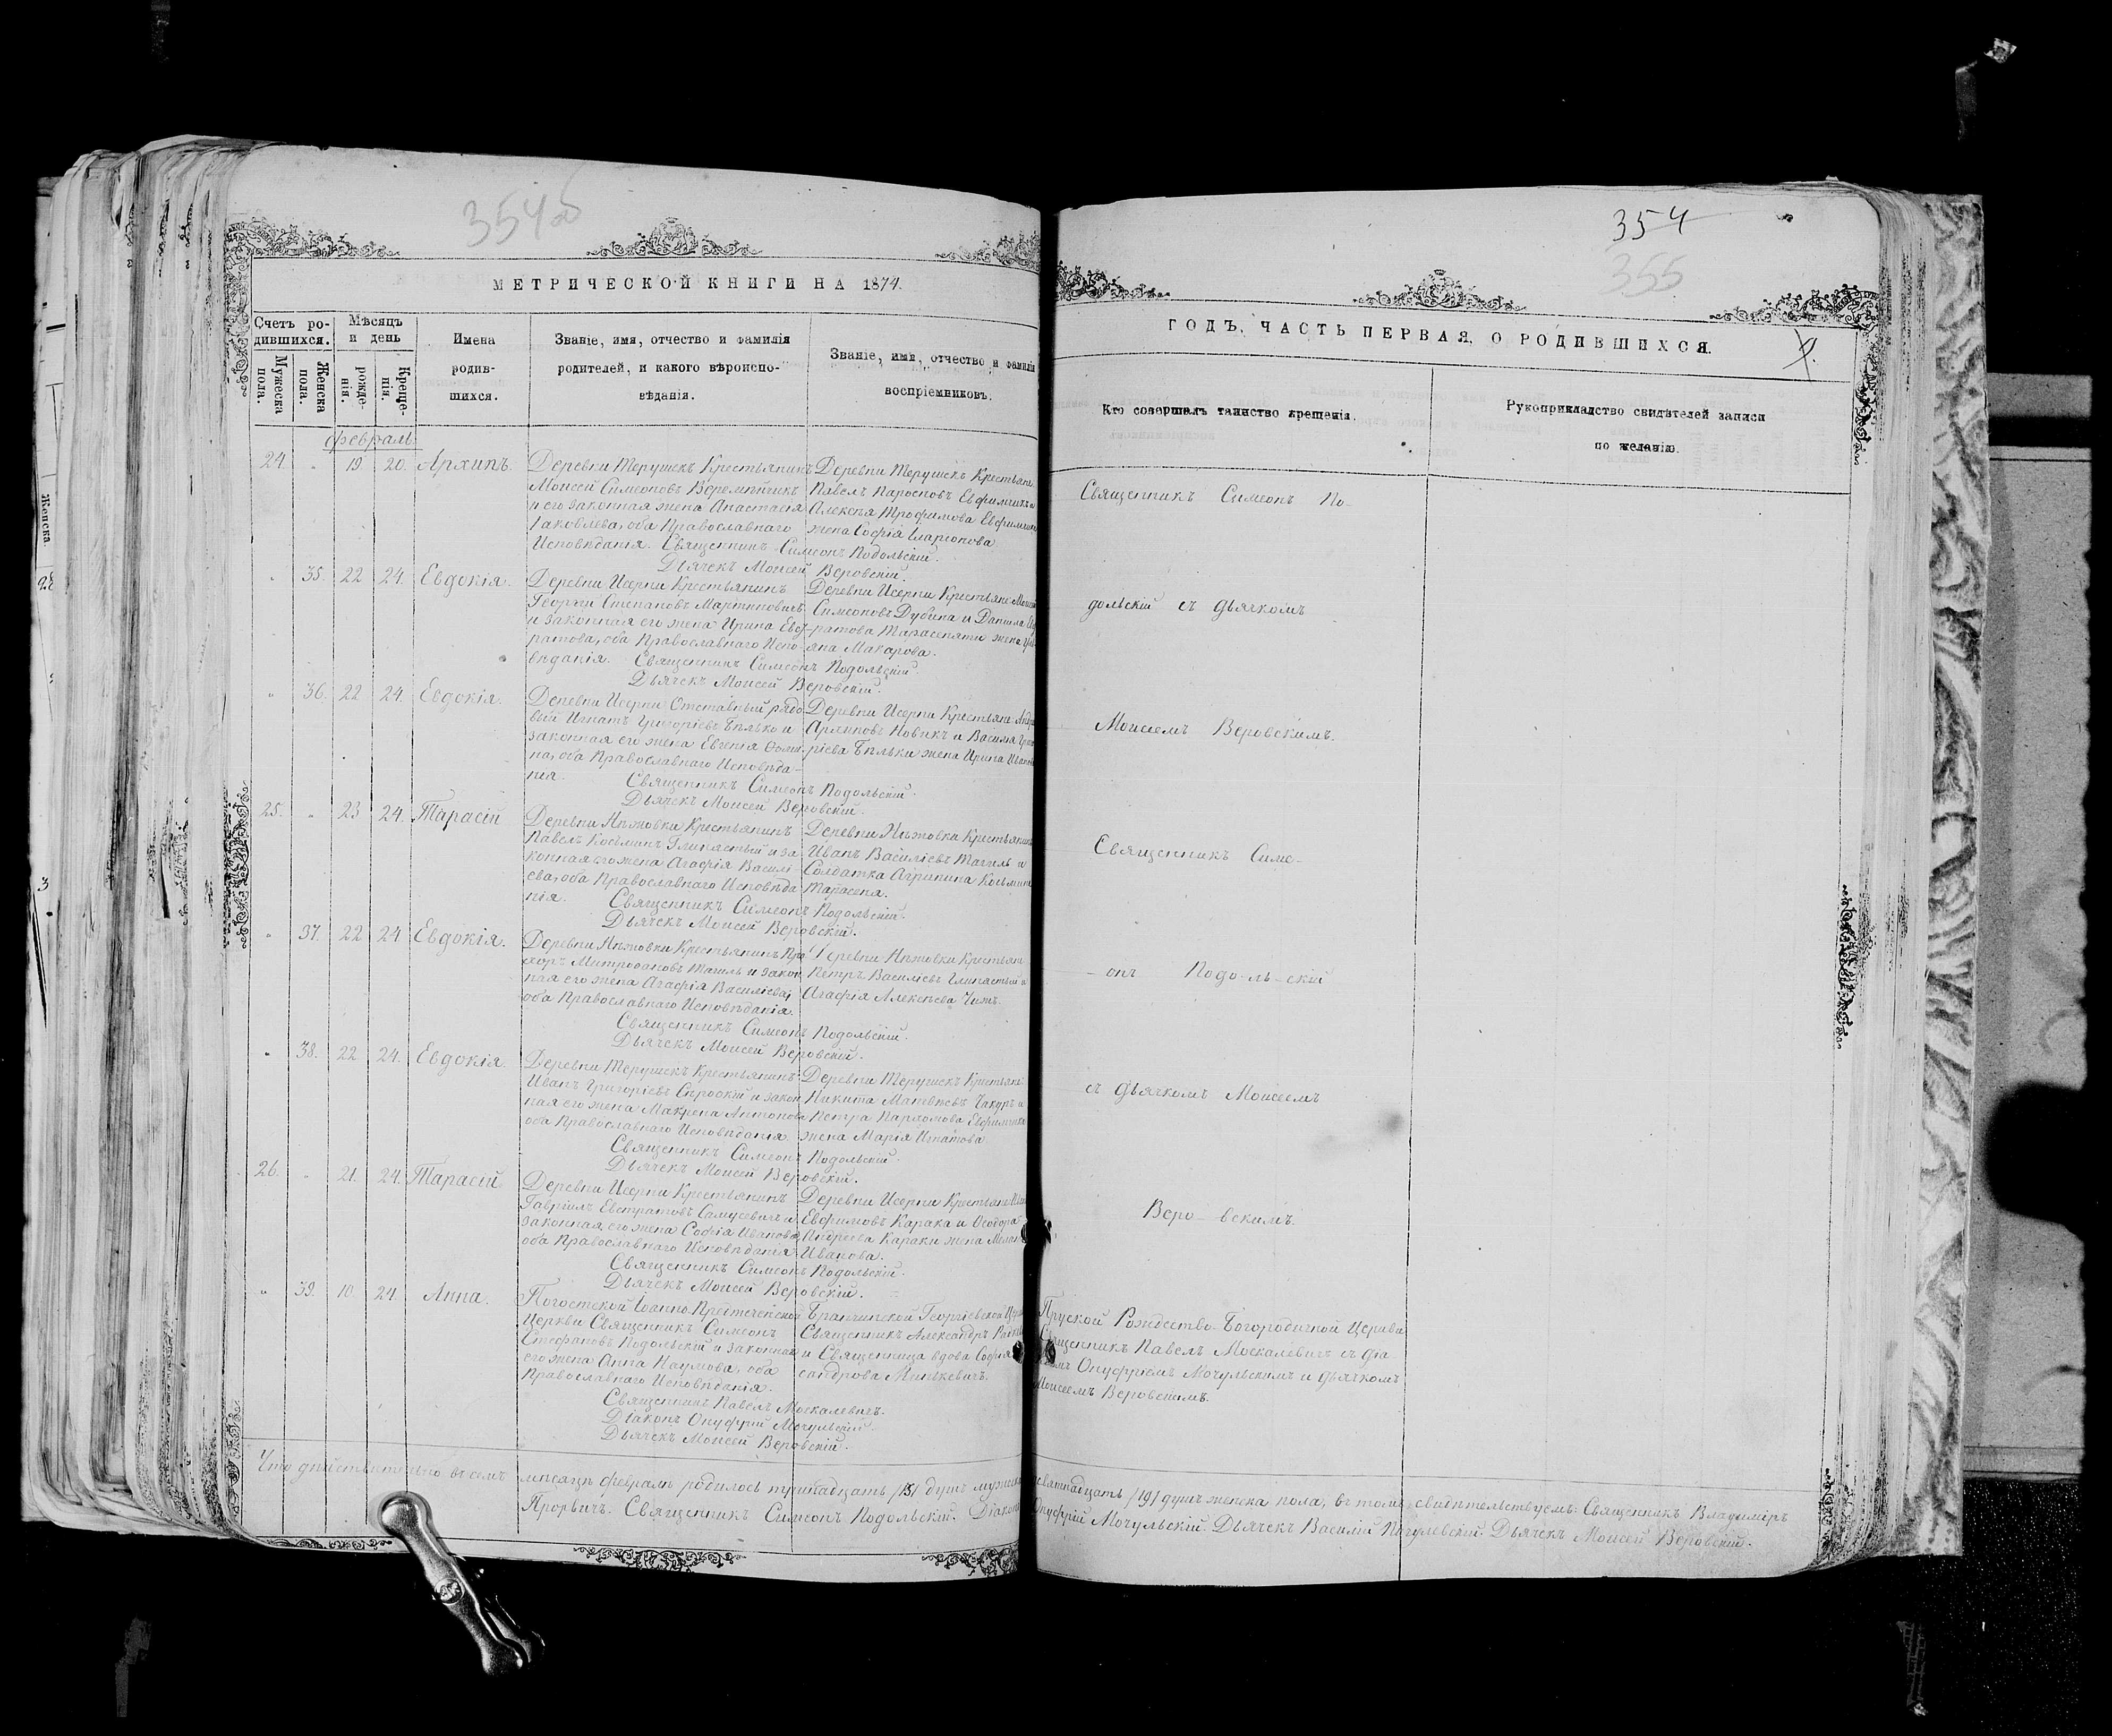 354об
МЕТРИЧЕСКОЙ КНИГИ НА 1874.
Счетъ ро-
дившихся.
Мужеска пола.
Женска пола.
Мѣсяцъ
и день
рожде-
нія.
Креще-
нія.
Имена
родив-
шихся.
Званіе, имя, отчество и фамилія
родителей, и какого вѣроиспо-
вѣданія.
Званіе, имя, отчество и фамилія
воспріемниковъ.
Февраль
24. " 19 20. Архипъ.
Деревни Терушекъ Крестьянинъ
Моисей Симеоновъ Веремѣйчикъ
и его законная жена Анастасія
Іаковлева, оба Православнаго
Исповѣданія. Священникъ Симеонъ Подольскій.
Дьячекъ Моисей Веровскій.
Деревни Терушекъ Крестьяне
Павелъ Евфимчикъ и
Алексѣя Трофимова
жена Софія Иларіонова
" 35. 22 24. Евдокія.
Деревни Исерни Крестьянинъ
Георгій Степановъ Мартиновичъ
и законная его жена Ирина Евст-
ратова, оба Православнаго Испо-
вѣданія. Священникъ Симеонъ Подольскій.
Дьячекъ Моисей Веровскій.
Деревни Исерни Крестьяне
Симеоновъ Дубина и Данила
ратова жена
яна Макарова.
" 36. 22 24. Евдокія.
Деревни Исерни Отставный рядо-
вый Игнатъ Григоріевъ Бѣлько и
законная его жена Евгенія Ѳоми-
на, оба Православнаго Исповѣда-
нія. Священникъ Симеонъ Подольскій.
Дьячекъ Моисей Веровскій.
Деревни Исерни Крестьяне
Архиповъ Новикъ и Василія
ріева Бѣльки жена Ирина
25. " 23 24. Тарасій
Деревни Нѣжовки Крестьянинъ
Павелъ Косьминъ Глинястый и за-
конная его жена Агафія Василі-
ева, оба Православнаго Исповѣда-
нія. Священникъ Симеонъ Подольскій.
Дьячекъ Моисей Веровскій.
Деревни Нѣжовки Крестьянинъ
Иванъ Василіевъ Тагиль и
Солдатка Агрипина Косьмина
" 37. 22 24 Евдокія.
Деревни Нѣжовки Крестьянинъ Про-
хоръ Митрофановъ Тагиль и закон-
ная его жена Агафія Василіева,
оба Православнаго Исповѣданія.
Священникъ Симеонъ Подольскій.
Дьячекъ Моисей Веровскій.
Деревни Нѣжовки Крестьяне
Петръ Василіевъ Глинястый и
Агафія Алексѣева Чижъ.
" 38. 22 24. Евдокія
Деревни Терушекъ Крестьянинъ
Иванъ Григоріевъ и закон-
ная его жена Макрена Антонова
оба Православнаго Исповѣданія.
Священникъ Симеонъ Подольскій.
Дьячекъ Моисей Веровскій.
Деревни Терушекъ Крестьяне
Никита Матвѣевъ и
Петра Пархомова
жена Марія Игнатова
26. " 21. 24. Тарасій.
Деревни Исерни Крестьянинъ
Гавріилъ Евстратовъ Самусевичъ и
законная его жена Софія Иванова,
оба Православнаго Исповѣданія
Священникъ Симеонъ Подольскій.
Дьячекъ Моисей Веровскій.
Деревни Исерни Крестьяне
Евфимовъ Карака и Ѳеодора
Андреева Караки жена
Иванова.
" 39. 10. 24. Анна.
Погостской Іоанно-Предтеченской
Церкви Священникъ Симеонъ
Стефановъ Подольскій и законная
его жена Анна Наумова, оба
Православнаго Исповѣданія.
Священникъ Павелъ Москалевичъ.
Діаконъ Онуфрій Мочульскій.
Дьячекъ Моисей Веровскій.
Георгіевской
Священникъ Александръ
и Священница вдова Софія
сандрова Минкевичъ.
Что дѣйствительно въ семъ мѣсяцѣ февралѣ родилось тринадцать /13/ душъ
Священникъ Симеонъ Подольскій.
354
355
ГОДЪ, ЧАСТЬ ПЕРВАЯ, О РОДИВШИХСЯ.
Кто совершалъ таинство крещенія.
Рукоприкладство свидѣтелей записи
по желанію.
Священникъ Симеонъ По-
дольскій съ дьячкомъ
Моисеемъ Веровскимъ.
Священникъ Симе-
- онъ Подо-ль-скій
съ дьячкомъ Моисеемъ
Веро-вскимъ.
Пруской Рождество-Богородичной Церкви
Священникъ Павелъ Москалевичъ съ діа
Онуфріемъ Мочульскимъ и дьячкомъ
Моисеемъ Веровскимъ.
девятнадцать /19/ душъ женска пола, въ томъ свидѣтельствуемъ: Священникъ Владиміръ
Онуфрій Мочульскій. Дьячекъ Василій Дьячекъ Моисей Веровскій.